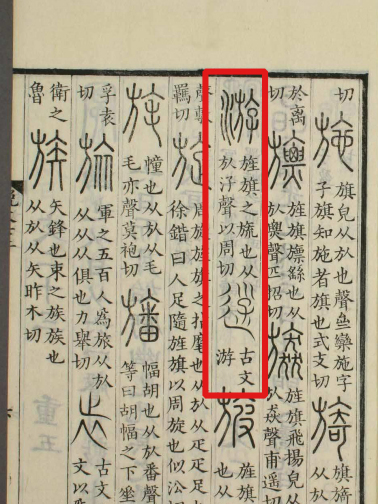 切
施
旗皃从㫃也聲亝欒施字
子旗知施者旗也式支切
旖
於离
切
旚
旌旗旚繇也从
㫃㶾聲匹招切
旌旗飛揚皃
从㫃猋聲甫遥切
游
旌旗之流也从
㫃汓聲以周切
古文
游
旇
旌旗
也从
羈切
旋
周旋旌旗之指麾也从㫃从疋疋足
徐鍇曰人足隨旌旗以周旋也似沿
旄
幢也从㫃从毛
毛亦聲莫袍切
旛
幅胡也从㫃番聲
等曰胡幅之下垂
孚袁
切
旅
軍之五百人爲旅从㫃
从从从俱也力舉切
古文
文以爲
魯
衛之
族
矢鋒也束之族族也
从㫃从矢昨木切